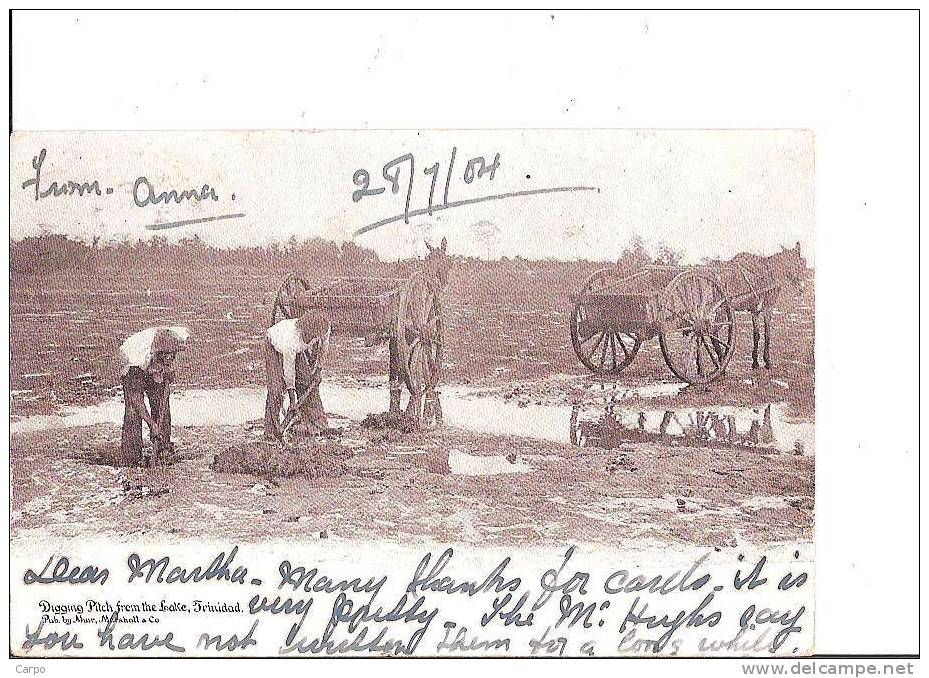 From - Anna.
28/7/04
Dear Martha - Many thanks for cards - it is
Digging Pitch from the Lake, Trinidad.
very Pretty. The Mc Hughs say
Pub. by Muir, Marshall & Co.
You have not written Them for a long while.
Carpo
delcampe.net